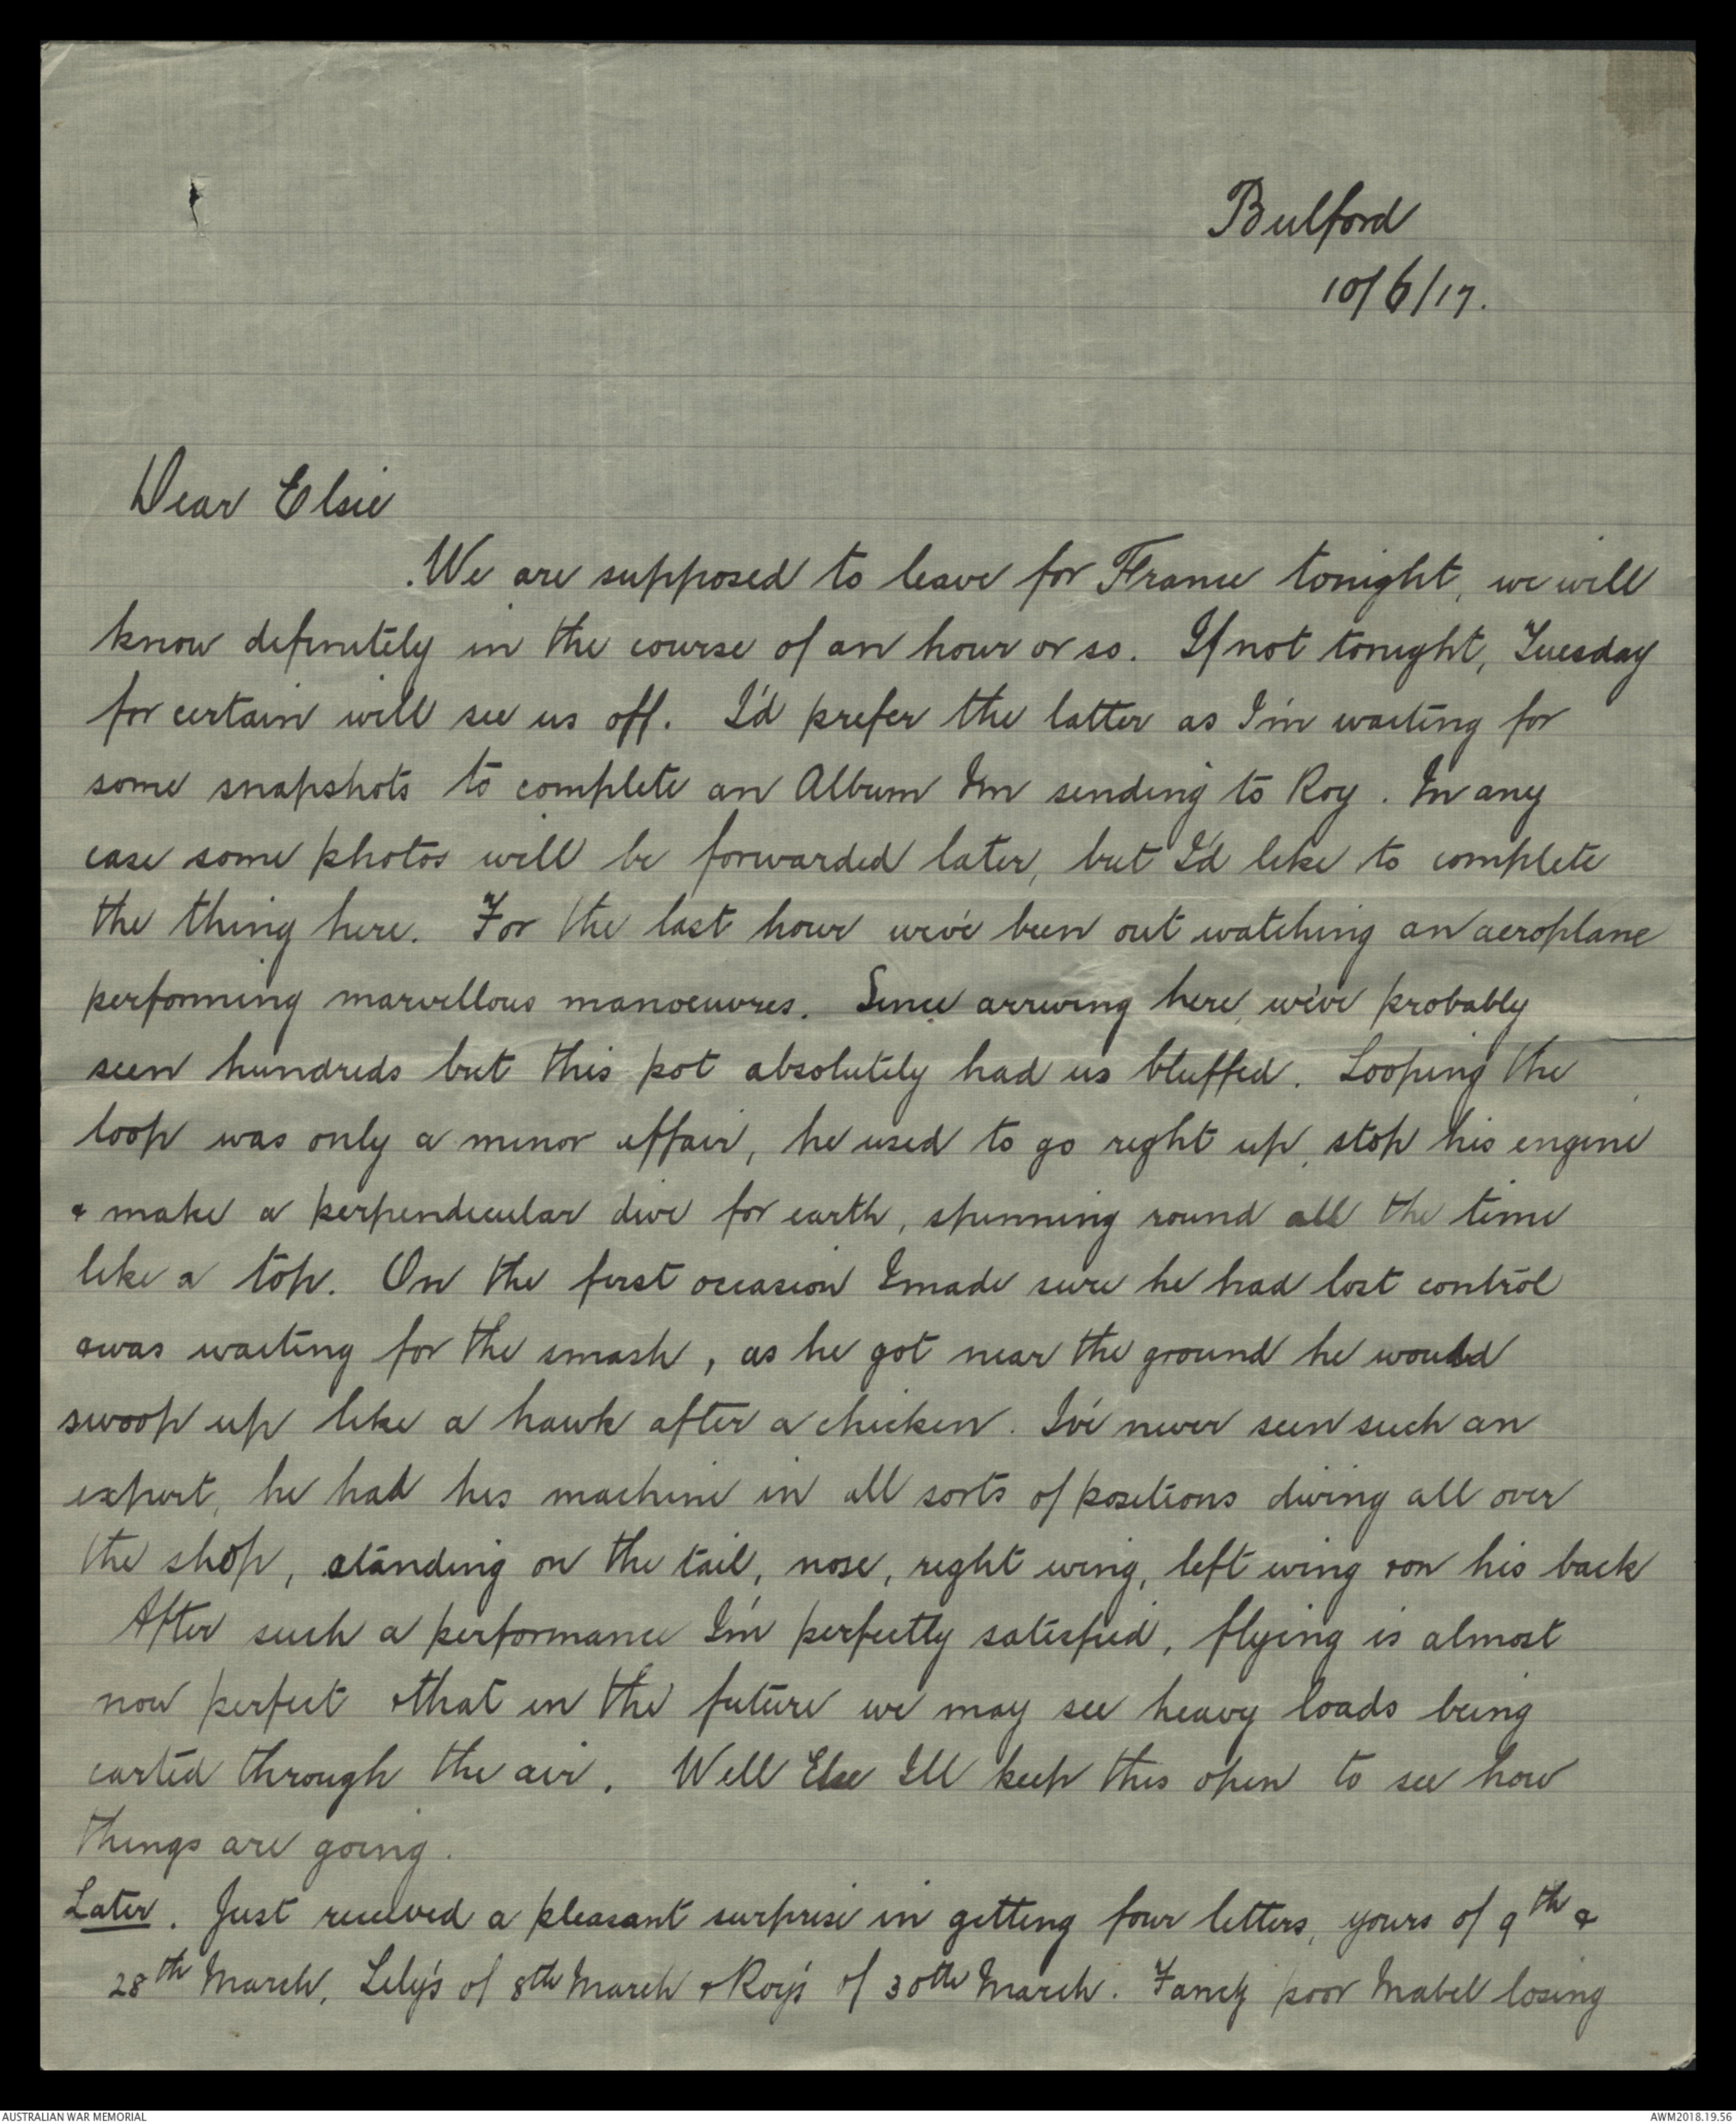 Bulford
10/6/17.
Dear Elsie
We are supposed to leave for France tonight, we will
know definitely in the course of an hour or so. If not tonight, Tuesday
for certain will see us off. I'd prefer the latter as I'm waiting for
some snapshots to complete an Album I'm sending to Roy. In any
case some photos will be forwarded later, but I'd like to complete
the thing here. For the last hour we've been out watching an aeroplane
performing marvellous manoeuvres. Since arriving here, we've probably
seen hundreds but this pot absolutely had us bluffed. Looping the
loop was only a minor affair, he used to go right up, stop his engine
& make a perpendicular dive for earth, spinning round all the time
like a top. On the first occasion I made sure he had lost control
& was waiting for the smash, as he got near the ground he would
swoop up like a hawk after a chicken. I've never seen such an
expert, he had his machine in all sorts of positions diving all over
the shop, standing on the tail, nose, right wing, left wing & on his back
After such a performance I'm perfectly satisfied, flying is almost
now perfect & that in the future we may see heavy loads being
carted through the air. Well Else I'll keep this open to see how
things are going.
Later. Just received a pleasant surprise in getting four letters, yours of 9th &
28th March, Lily's of 8th March & Roy's of 30th March. Fancy poor Mabel losing
AUSTRALIAN WAR MEMORIAL
AWM2018.19.56